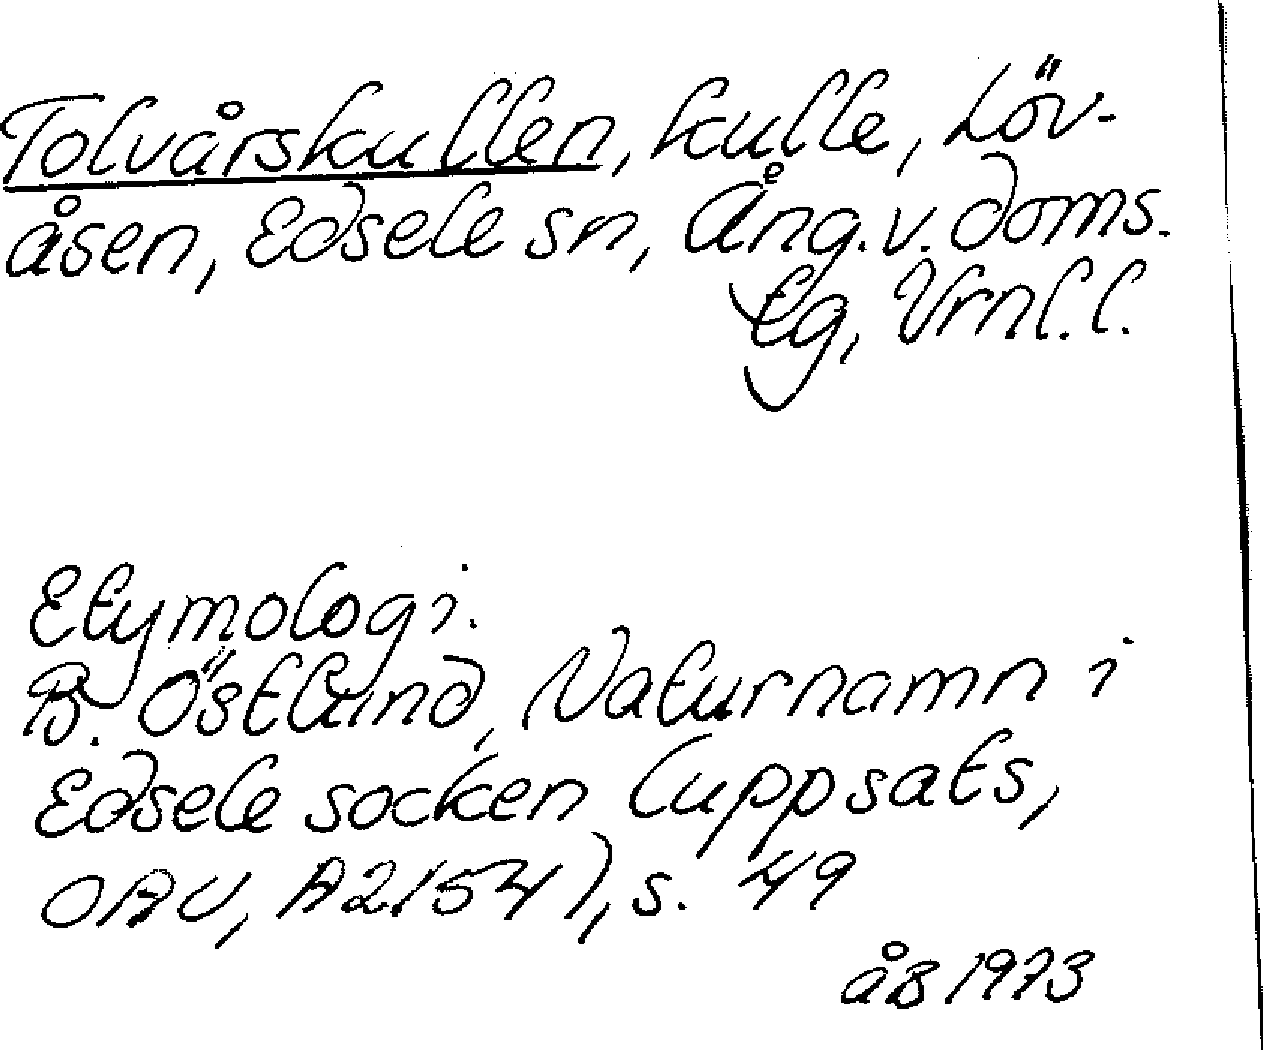 Tolvårskullen, kulle, Löv-
åsen, Edsele sn, Ång.v.doms.
tg, Vrnl.l.
Etymologi.
B. Östlund, Naturnamn i
Edsele socken (uppsats,
OAU, A2154), s. 49
åB 1973